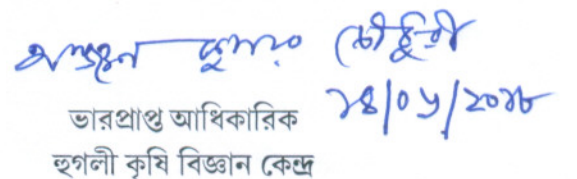 কুমার চৌধুরী
১৪/০৬/২০১৮
ভারপ্রাপ্ত আধিকারিক
হুগলী কৃষি বিজ্ঞান কেন্দ্র